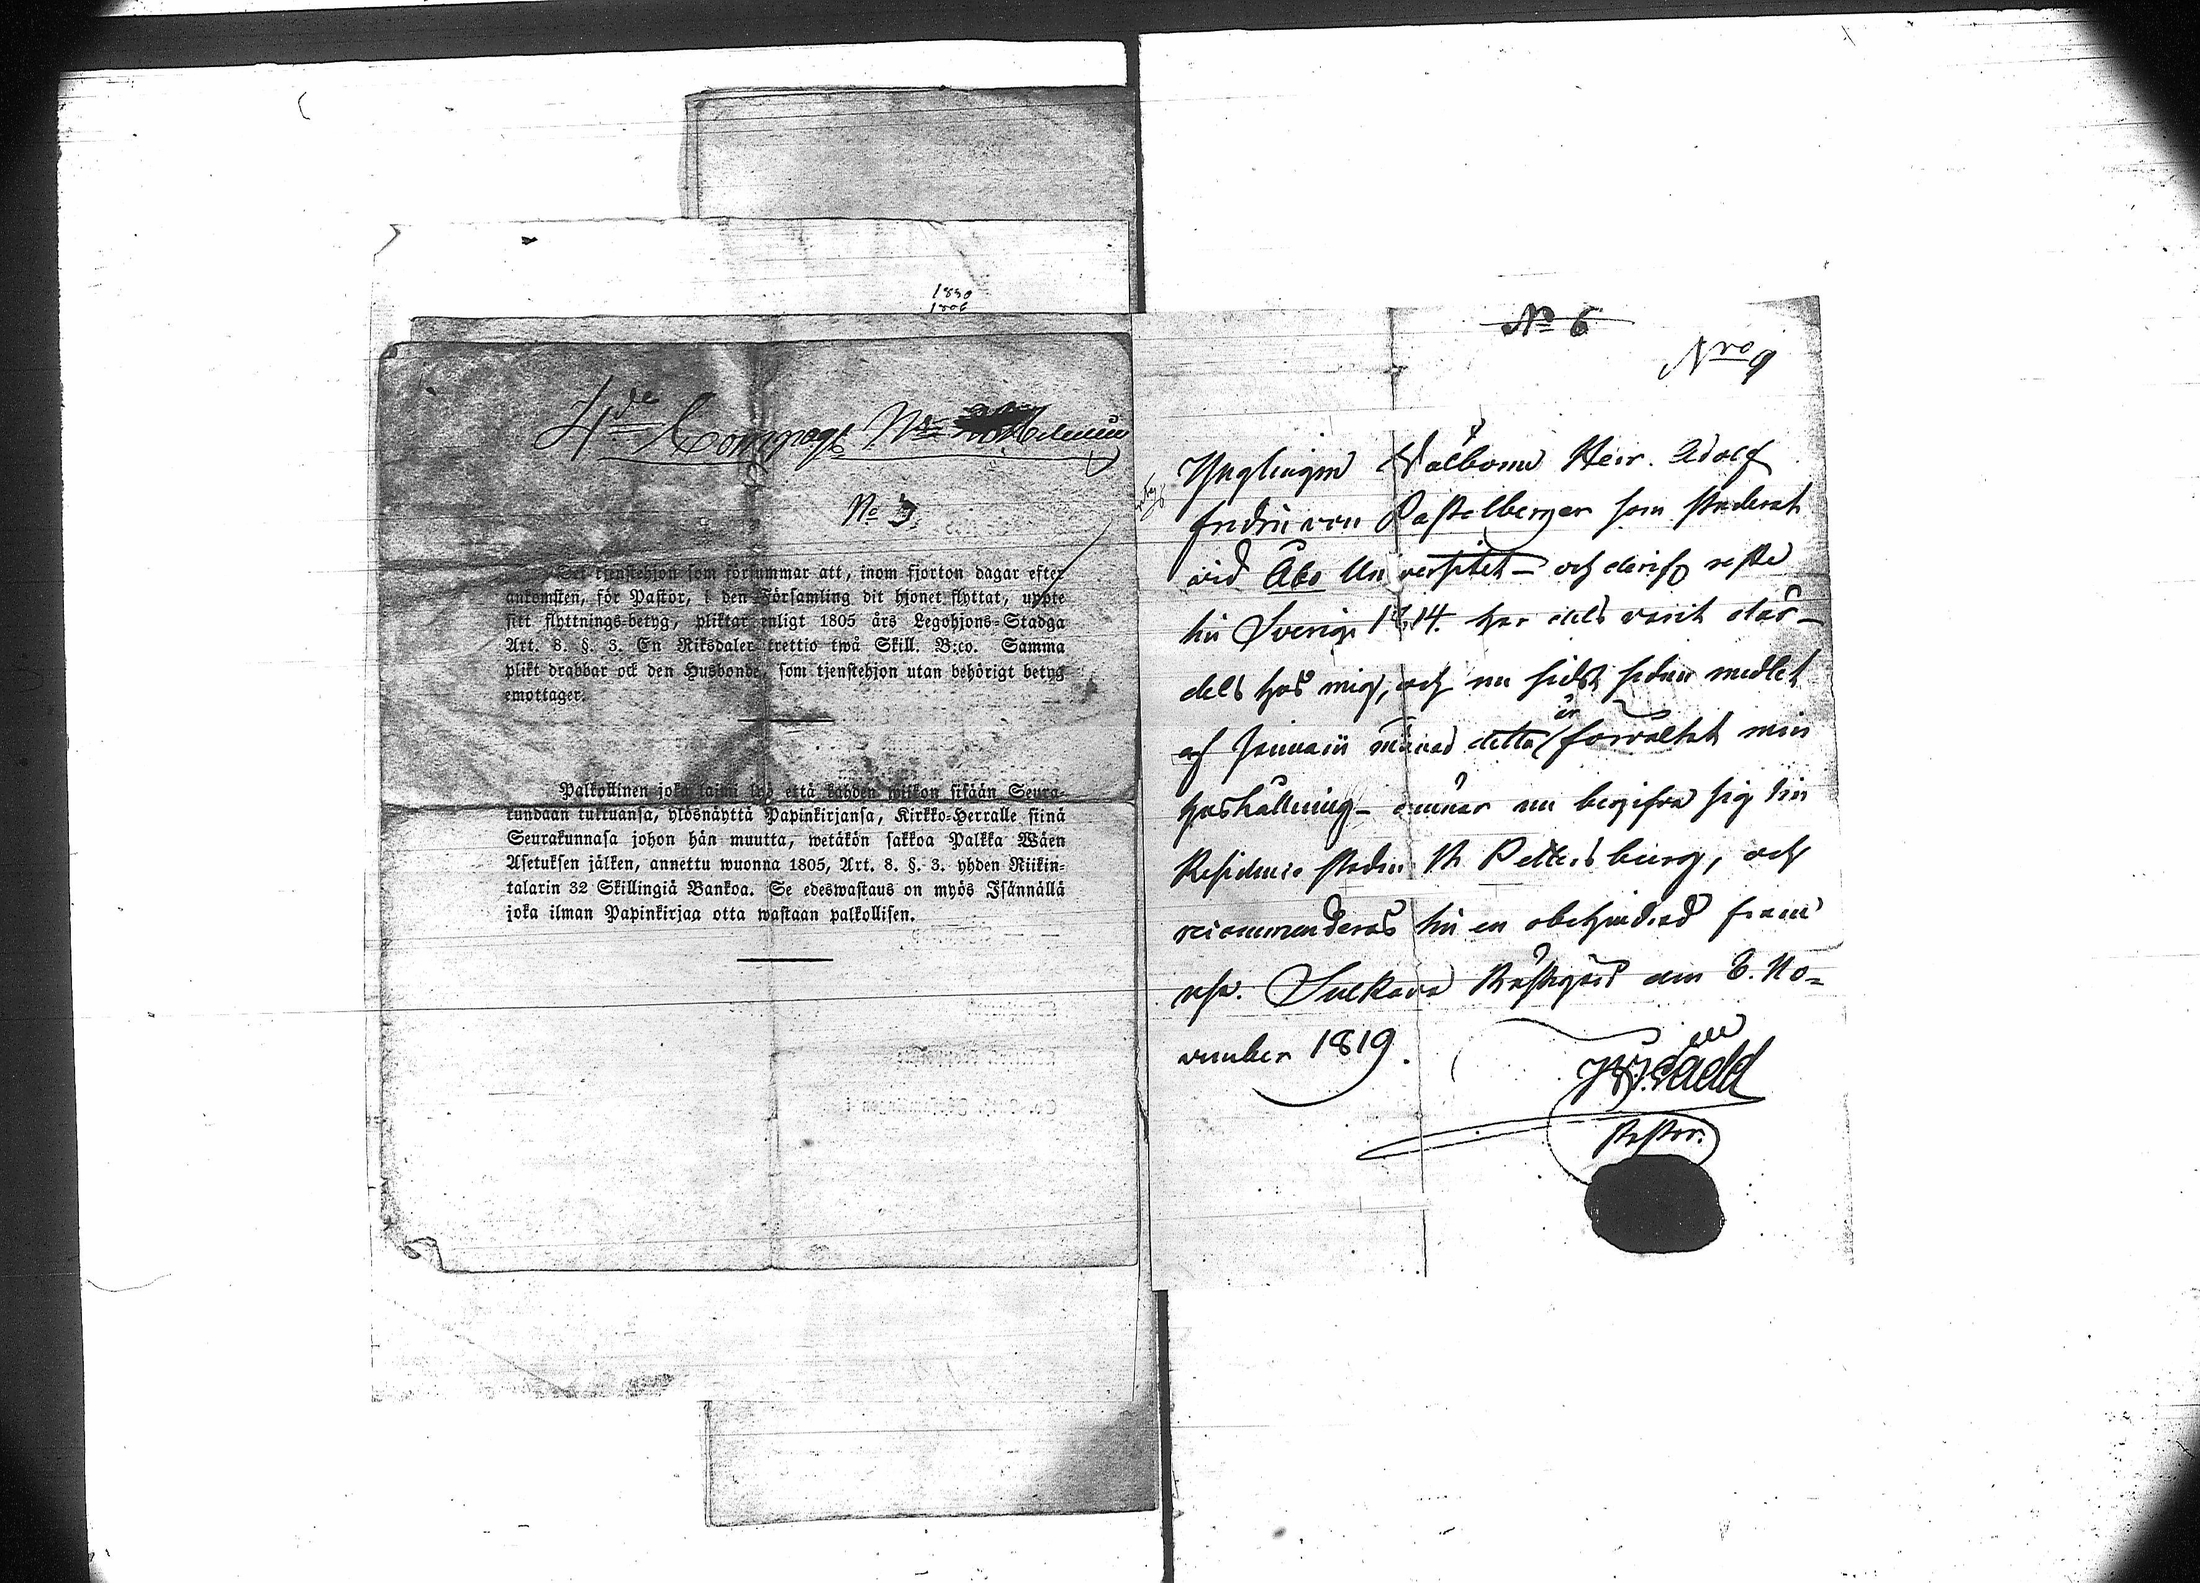 1830
1806
4de Compagt Nr
No 3
Det tjenstehjon som försummar att, inom fjorton dagar efter
ankomsten, för Pastor, i den Församling dit hjonet flyttat, uppte
sitt flyttnings-betyg, pliktar enligt 1805 års Legohjons-Stadga
Art. 8. §. 3. En Riksdaler trettio twå Skill. B:co. Samma
plikt drabbar ock den Husbonde, som tjenstehjon utan behörigt betyg
emottager.
Palkollinen joka laimi lyö että kahden wiikon sisään Seura-
kundaan tultuansa, ylösnäyttä Papinkirjansa, Kirkko-Herralle siinä
Seurakunnasa johon hän muutta, wetäkön sakkoa Palkka Wäen
Asetuksen jälken, annettu wuonna 1805, Art. 8. §. 3. yhden Riikin-
talarin 32 Skillingiä Bankoa. Se edeswastaus on myös Isännällä
joka ilman Papinkirjaa otta wastaan palkollisen.
No 6
Nro 9
Ynglingen Välborne Herr. Adolf
Fredric von Pastelberger som studerat
vid Åbo Universitet – och derifr reste
till Sverige 1814. har dels varit där –
dels hos mig, och nu sidst sedan medlet
af Januarii månad detta år förvaltat min
hushållning – ämnar nu begifva sig till
Residence staden St Petersburg, och
recommenderas till en obehindrad fram
resa. Sulkava Prästgård den 8. No=
vember 1819.
Pastor.